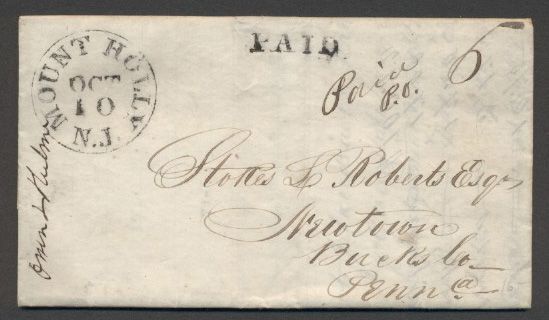 MOUNT HOLLY
OCT
10
N.J.
PAID
Paid
P.O.
6
Stokes L Roberts Esqr
Newtown
Bucks Co
Penna